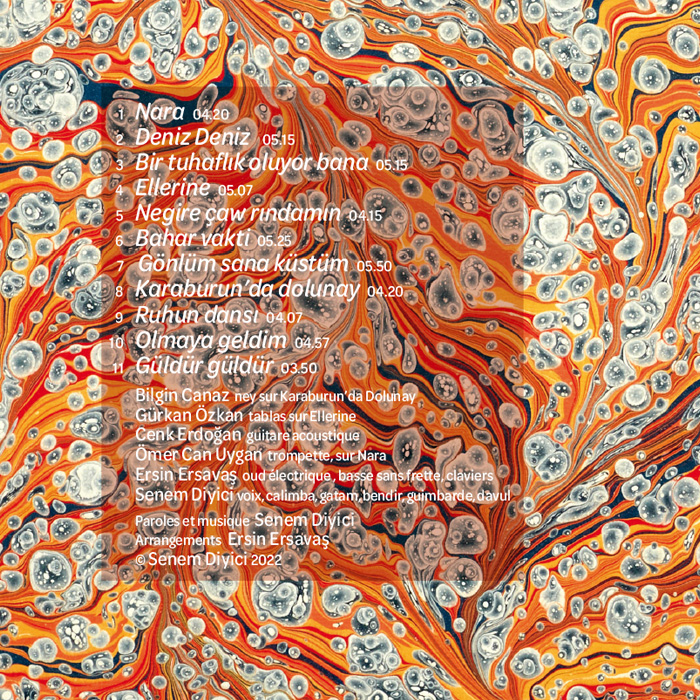 1 Nara 04.20
2 Deniz Deniz 05.15
3 Bir tuhaflık oluyor bana 05.15
4 Ellerine 05.07
5 Negire çaw rındamın 04.15
6 Bahar vakti 05.25
7 Gönlüm sana küstüm 05.50
8 Karaburun'da dolunay 04.20
9 Ruhun dansı 04.07
10 Olmaya geldim 04.57
11 Güldür güldür 03.50
Bilgin Canaz ney sur Karaburun'da Dolunay
Gürkan Özkan tablas sur Ellerine
Cenk Erdoğan guitare acoustique
Ömer Can Uygan trompette, sur Nara
Ersin Ersavaş oud électrique, basse sans frette, claviers
Senem Diyici voix, calimba, gatam, bendir, guimbarde, davul
Paroles et musique Senem Diyici
Arrangements Ersin Ersavaş
© Senem Diyici 2022